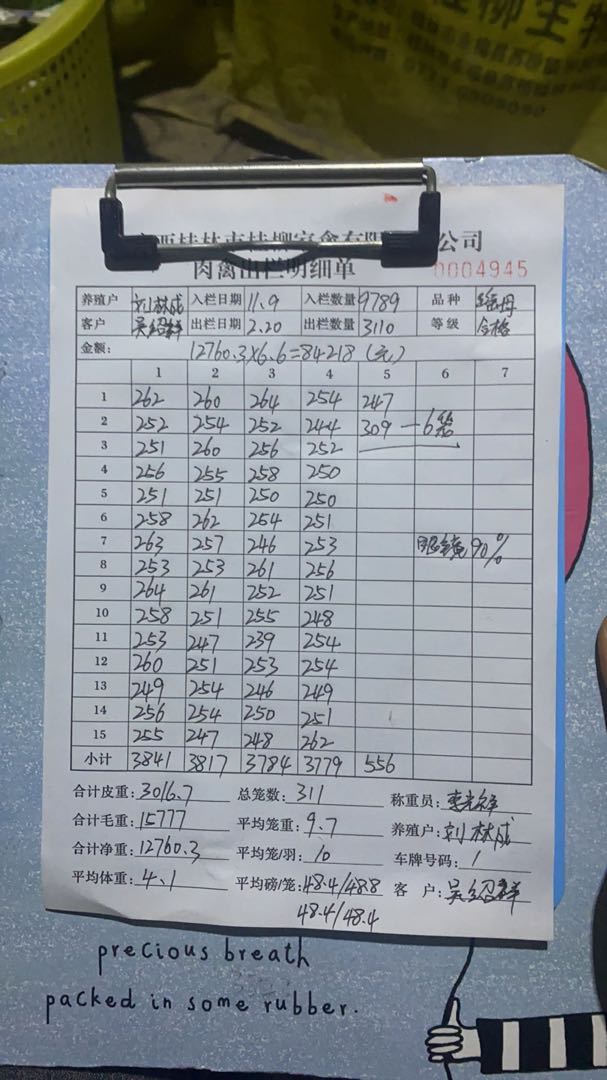 柳生物
公司
肉禽出栏明细单
0004945
养殖户 刘林成 入栏日期 11.9 入栏数量 9789 品种
客户 吴绍群 出栏日期 2.20 出栏数量 3110 等级 合格
金额: 12760.3×6.6=84218(元)
1 2 3 4 5 6 7
1 262 260 264 254 247
2 252 254 252 244 309 —6笼
3 251 260 256 252
4 256 255 258 250
5 251 251 250 250
6 258 262 254 251
7 263 257 246 253 90%
8 253 253 261 256
9 264 261 252 251
10 258 251 255 248
11 253 247 239 254
12 260 251 253 254
13 249 254 246 249
14 256 254 250 251
15 255 247 248 262
小计 3841 3817 3784 3779 556
合计皮重: 3016.7 总笼数: 311 称重员:
合计毛重: 15777 平均笼重: 9.7 养殖户: 刘林成
合计净重: 12760.3 平均笼/羽: 10 车牌号码: 1
平均体重: 4.1 平均磅/笼: 48.4/48.8 客户: 吴绍群
48.4/48.4
precious breath
packed in some rubber.